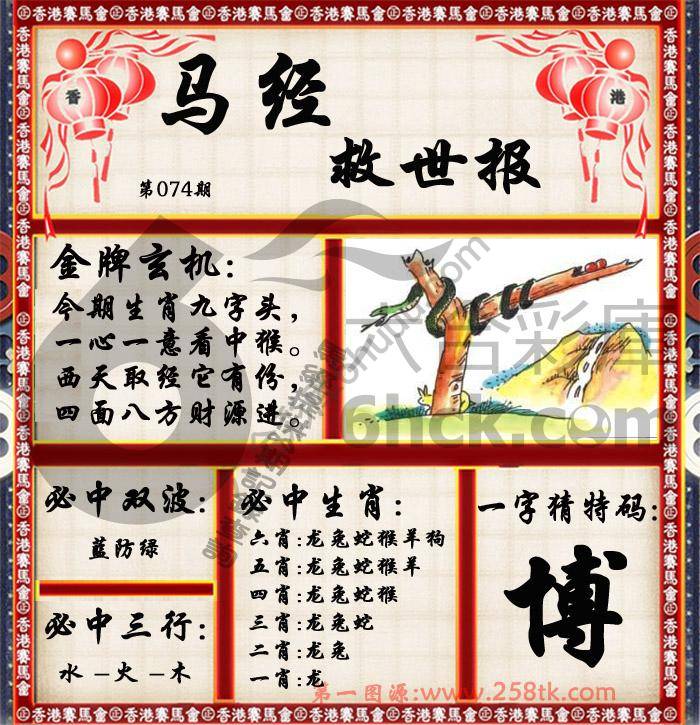 香港賽馬會
香
港
马经
救世报
第074期
金牌玄机:
今期生肖九字头,
一心一意看中猴。
西天取经它有份,
四面八方财源进。
六合彩庫
6hck.com
必中双波:
蓝防绿
必中三行:
水－火－木
必中生肖:
六肖:龙兔蛇猴羊狗
五肖:龙兔蛇猴羊
四肖:龙兔蛇猴
三肖:龙兔蛇
二肖:龙兔
一肖:龙
一字猜特码:
博
第一图源:www.258tk.com